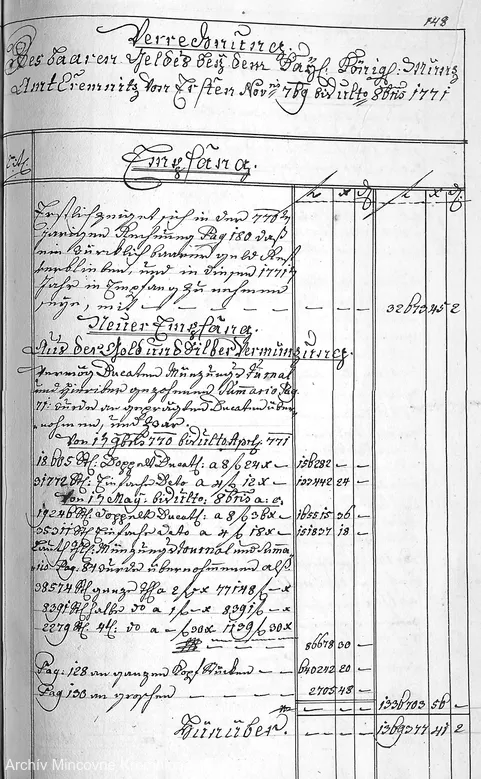 148
Verrechnung.
Des baaren Geldes bey dem Kayl: Königl: Münz
Amt Cremnitz Von Ersten Novr: 769 bis ulto 8bris 1771
Empfang.
f x d f x d
Erstlich zeiget sich in der 770ger
jährigen Rechnung Pag 180 daß
ein Würcklich baaren geld Rest
verblieben, und in diesen 1771ger
Jahr in Empfang zu nehmen
seye, mit — — — — — 32673 45 2
Neuer Empfang.
Aus der Gold und Silber Vermünzung.
Vermög Ducaten Münzungs Jurnal
und hierüber gezohenen Sumario Pag
71: wurde an geprägten Ducaten über
nohmen, und zwar.
Von 1ten 9bris 770 bis ulto April: 771
18605 Stk: Doppelte Ducat: a 8 f 24 x — 156282 — —
31772 Stk: Einfache Deto a 4 f 12 x — 133442 24
Von 1ten May: bis ulto: 8bris a: c:
19246 Stk: Doppelte Ducat: a 8 f 36 x — 165515 36
35311 Stk: Einfache Deto a 4 f 18 x — 151837 18
Laut Münzungs Journal und Suma
rio Pag: 84 wurde übernohmen als
38574 Stk ganze Th a 2 f — x 77148 f — x
8391 Stk halbe do a 1 f — x 8391 f — x
2279 Stk 4tl: do a — f 30 x 1139 f 30 x
86678 30
Pag: 128 an ganzen Kopf Stucken — — 640242 20
Pag 130 an groschen — — — 2705 48
1336703 56
Hinüber. 1369377 41 2
Archív Mincovne Kremnica